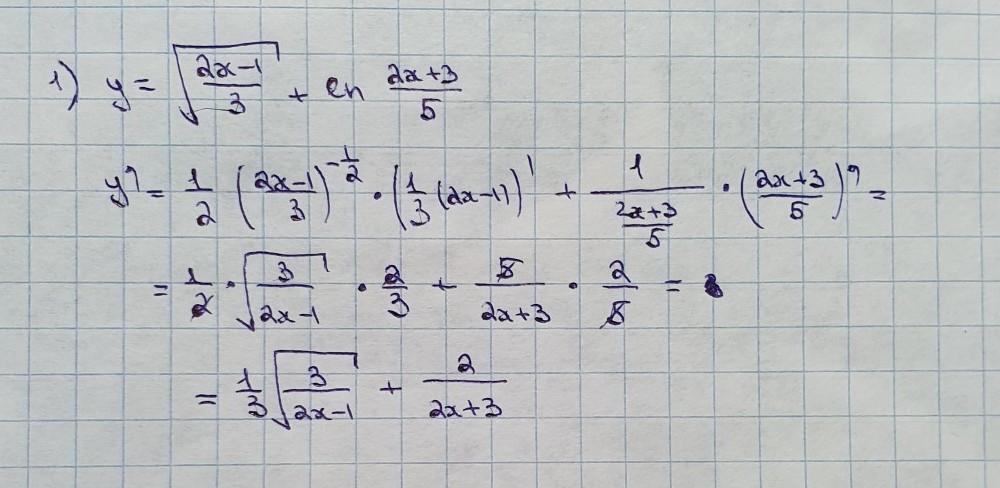 1) y = √((2x-1)/3) + ln (2x+3)/5
y' = 1/2 ((2x-1)/3)^(-1/2) · (1/3 (2x-1))' + 1/((2x+3)/5) · ((2x+3)/5)' =
= 1/2 · √(3/(2x-1)) · 2/3 + 5/(2x+3) · 2/5 =
= 1/3 √(3/(2x-1)) + 2/(2x+3)